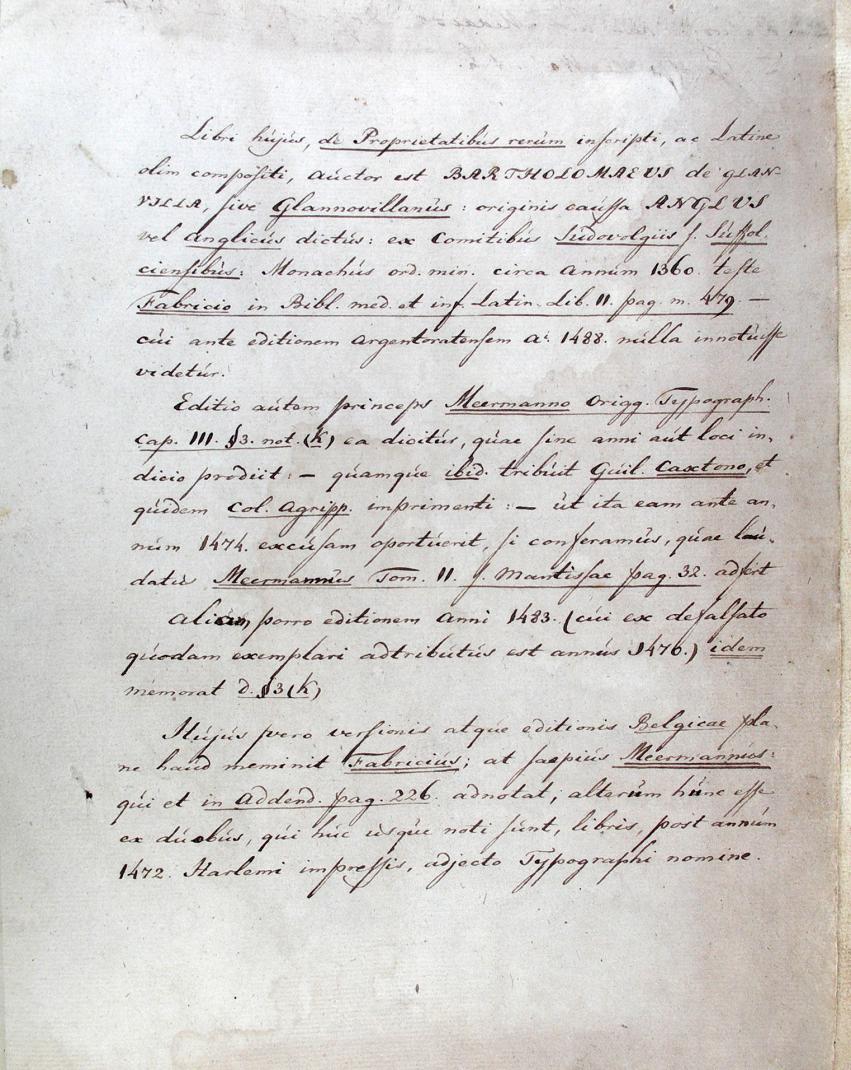 Libri hujus, de Proprietatibus rerum inscripti, ac Latine
olim compositi, auctor est BARTHOLOMAEUS de GLAN-
VILLA, sive Glannovillanus: originis caussa ANGLUS
vel Anglicus dictus: ex Comitibus Sudovolgiis s. Suffol.
ciensibus: Monachus ord. min. circa Annum 1360. teste
Fabricio in Bibl. med. et inf. Latin. Lib. II. pag. m. 479. —
cui ante editionem Argentoratensem Aͦ. 1488. nulla innotuisse
videtur.
Editio autem princeps Meermanno Origg. Typograph.
Cap. III. §3. not. (K) ea dicitus, quae sine anni aut loci in-
dicio prodiit: — quamque ibid. tribuit Guil. Caxtono, et
quidem Col. Agripp. imprimenti: — ut ita eam ante an-
num 1474. excusam oportuerit, si conferamus, quae lau-
datus Meermannus Tom. II. s. Mantissae pag. 32. adfert
Aliam porro editionem Anni 1483. (cui ex defalsato
quodam exemplari adtributus est annus 1470.) idem
memorat d. §3 (K)
Hujus vero versionis atque editionis Belgicae pla-
ne haud meminit Fabricius; at saepius Meermannus:
qui et in Addend. pag. 226. adnotat, alterum hunc esse
ex duobus, qui huc usque noti sunt, libris, post annum
1472. Harlemi impressis, adjecto Typographi nomine.